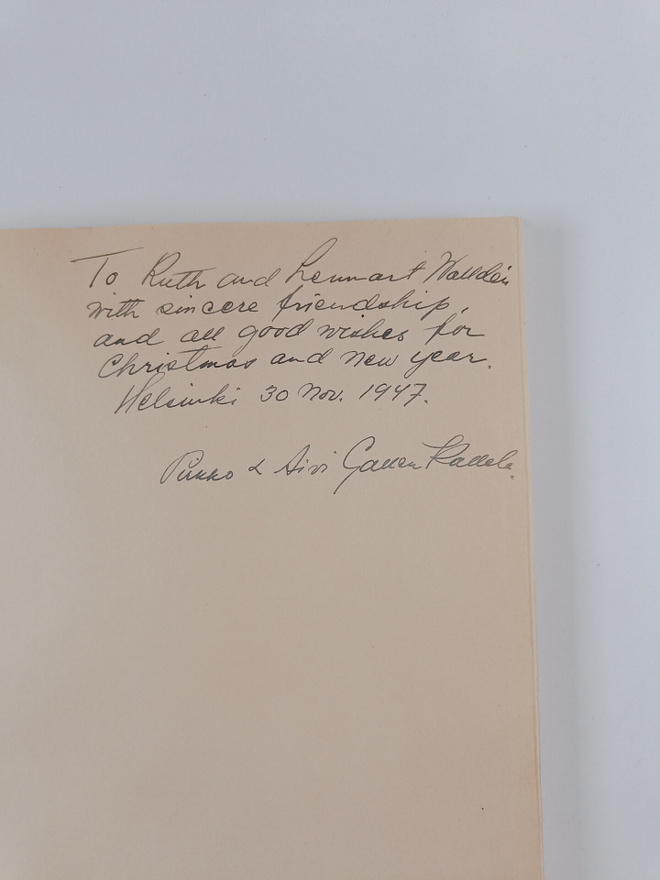 To Ruth and Lennart Walldén
with sincere friendship,
and all good wishes for
Christmas and New year.
Helsinki 30 Nov. 1947.
Pirkko & Aivi Gallen Kallela.